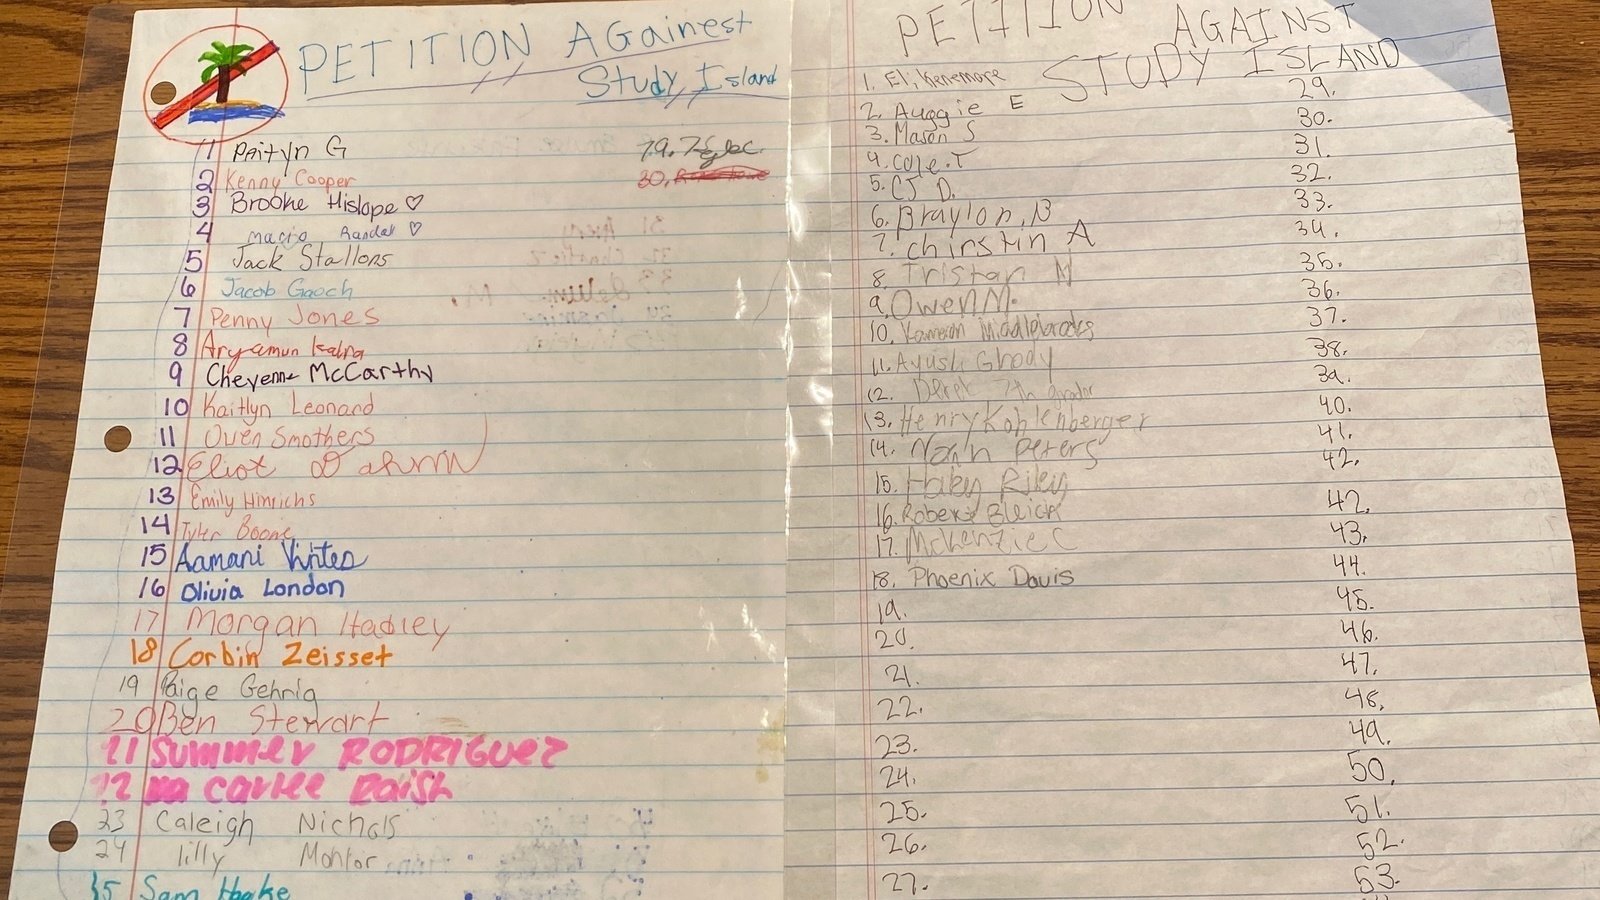 PETITION AGainest
Study Island
1 Paityn G
2 Kenny Cooper
3 Brooke Hislope ♡
4 Randal ♡
5 Jack Stallons
6 Jacob Gooch
7 Penny Jones
8 Aryamun Kalra
9 Cheyenne McCarthy
10 Kaitlyn Leonard
11 Owen Smothers
12 Eliot
13 Emily Hinrichs
14 Tyler Boone
15 Aamani
16 Olivia London
17 Morgan Hadley
18 Corbin Zeisset
19 Paige Gehrig
20 Ben Stewart
21 Summer RODRIGUEZ
22
23 Caleigh Nichols
24 lilly
Sam Hooke
30.
PETITION AGAINST
STUDY ISLAND
1. Eli Kenemore
2. Auggie E
3. Mason S
4. Cole.T
5. CJ D.
6. Braylon.B
7. Chirstin A
8. Tristan M
9. Owen M.
10. Kameron Middlebrooks
11. Ayush Ghody
12. Derek 7th grador
13. Henry Kohlenberger
14. Noah Peters
15. Haley Riley
16. Robert
17. McKenzie C
18. Phoenix Davis
19.
20.
21.
22.
23.
24.
25.
26.
27.
29.
30.
31.
32.
33.
34.
35.
36.
37.
38.
39.
40.
41.
42.
42.
43.
44.
45.
46.
47.
48.
49.
50.
51.
52.
53.